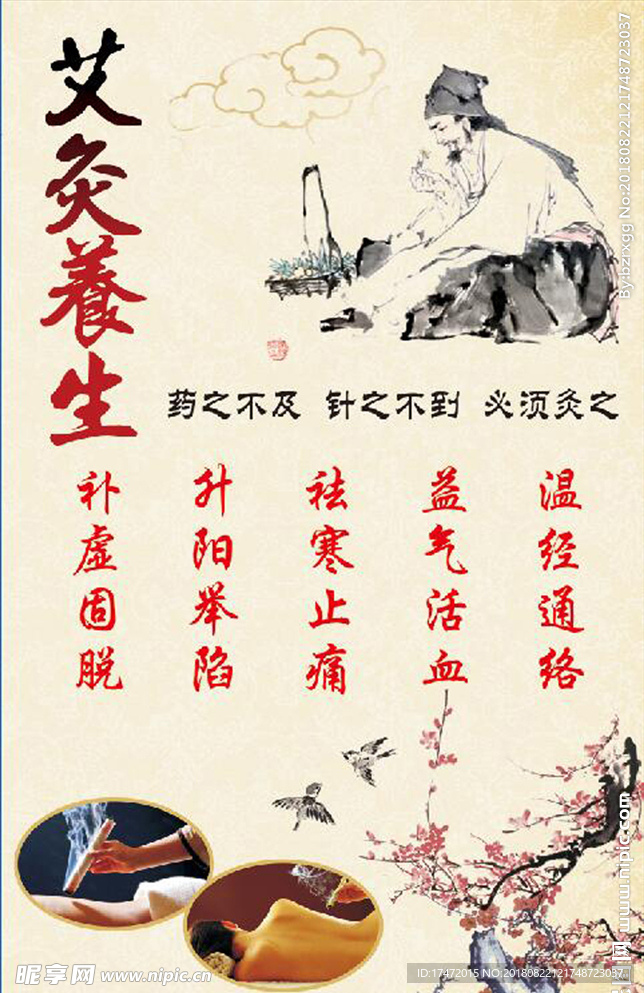 艾灸養生
药之不及 针之不到 必须灸之
温经通络
益气活血
祛寒止痛
升阳举陷
补虚固脱
By:bzrxgg No:20180822121748723037
昵享网 www.nipic.cn
ID:17472015 NO:20180822121748723037
网 www.nipic.com